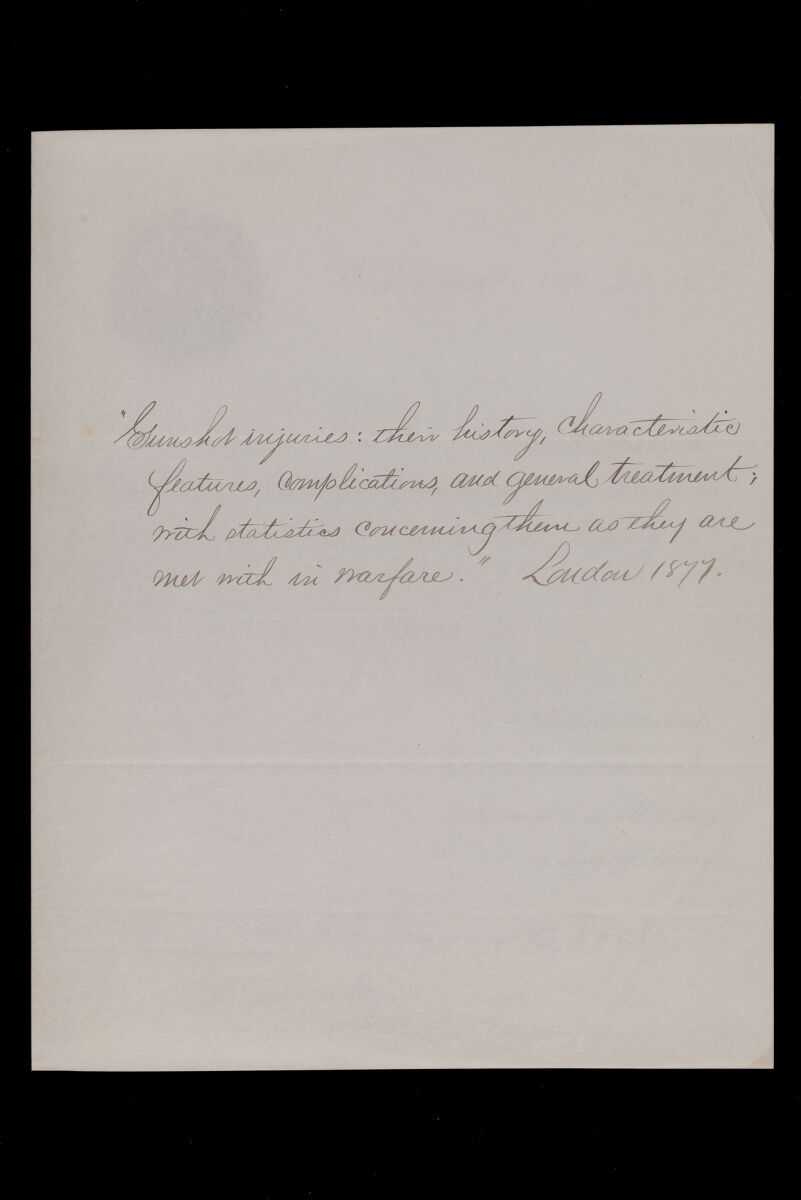 "Gunshot injuries: their history, characteristic
features, complications, and general treatment;
with statistics concerning them as they are
met with in warfare." London 1877.